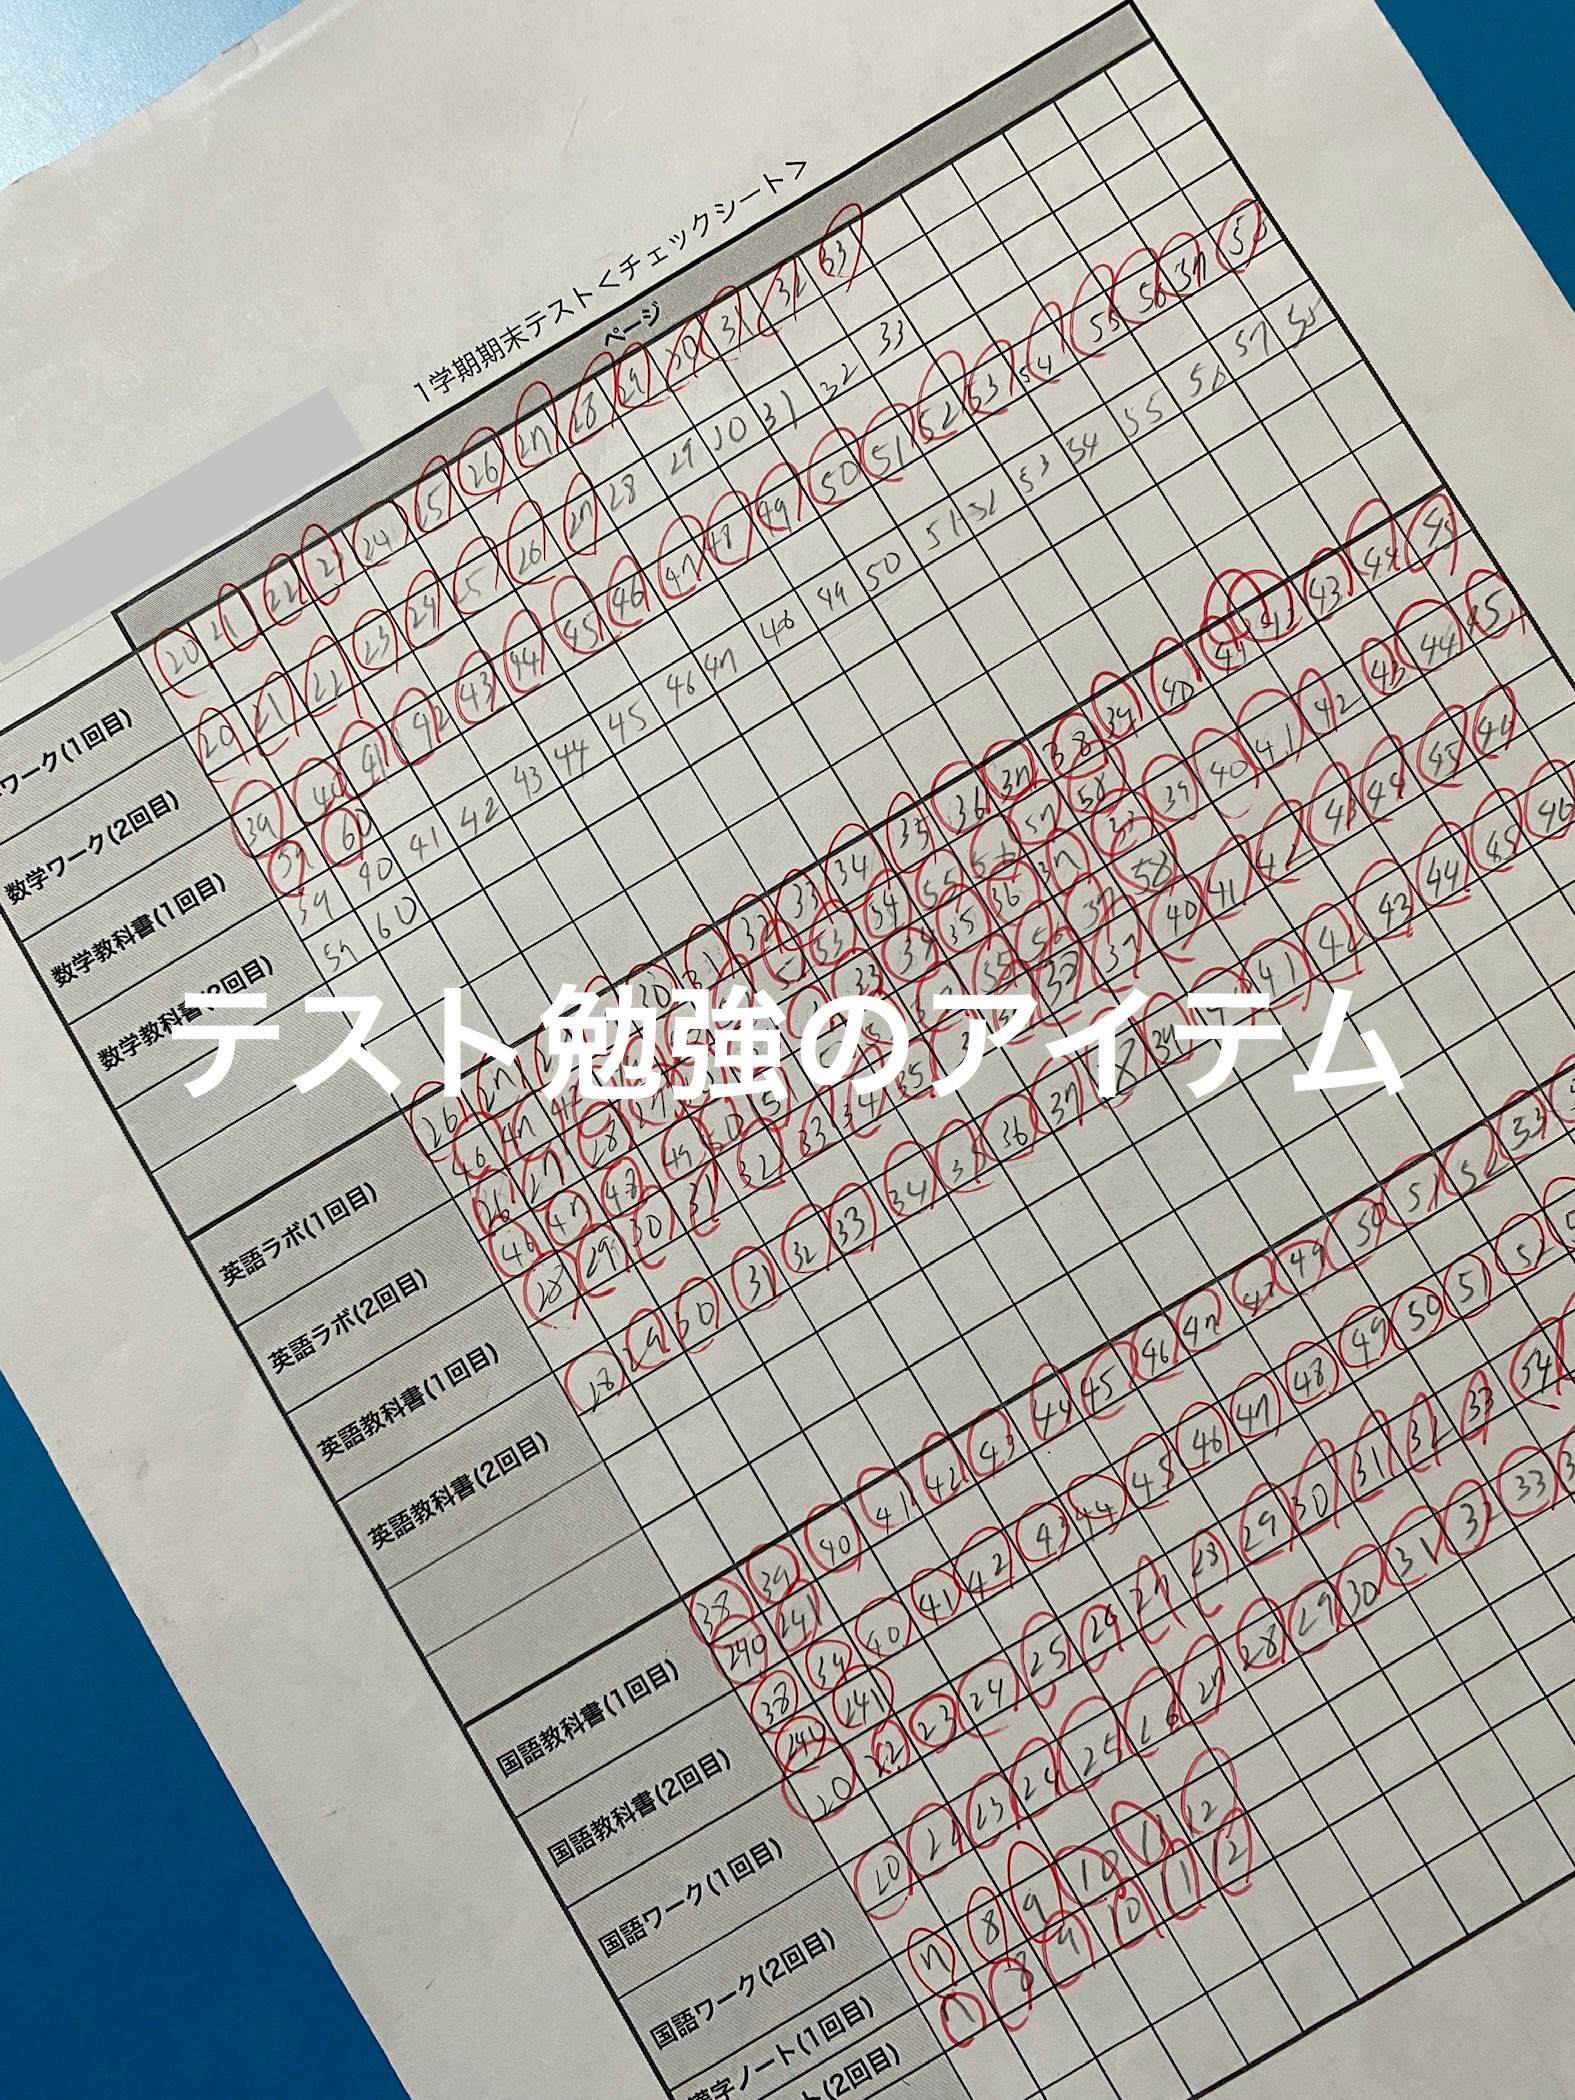 1学期期末テスト<チェックシート>
ページ
ワーク(1回目)
20 21 22 23 24 25 26 27 28 29 30 31 32 33
数学ワーク(2回目)
20 21 22 23 24 25 26 27 28 29 30 31 32 33
数学教科書(1回目)
39 40 41 42 43 44 45 46 47 48 49 50 51 52 53 54 55 56 57 58
59 60
数学教科書(2回目)
39 40 41 42 43 44 45 46 47 48 49 50 51 52 53 54 55 56 57 58
59 60
テスト勉強のアイテム
英語ラボ(1回目)
26 27
30 31 32 33 34 35 36 37 38 39 40 41 42 43 44 45
46 47
53 54 55 56 57 58
英語ラボ(2回目)
26 27 28
33 34 35 36 37
39 40 41 42 43 44 45
46 47 48 49 50
58
英語教科書(1回目)
28 29 30 31 32 33 34 35
40 41 42 43 44 45 46
英語教科書(2回目)
28 29 30 31 32 33 34 35 36 37
39
41 42 43 44 45 46
国語教科書(1回目)
38 39 40 41 42 43 44 45 46 47 48 49 50 51 52 53
240 241
国語教科書(2回目)
38 39 40 41 42 43 44 45 46 47 48 49 50 51 52
240 241
国語ワーク(1回目)
20 22 23 24 25 26 27 28 29 30 31 32 33 34
国語ワーク(2回目)
20 22 23 24 25 26 27 28 29 30 31 32 33
漢字ノート(1回目)
7 8 9 10 11 12
ト(2回目)
7 8 9 10 11 12